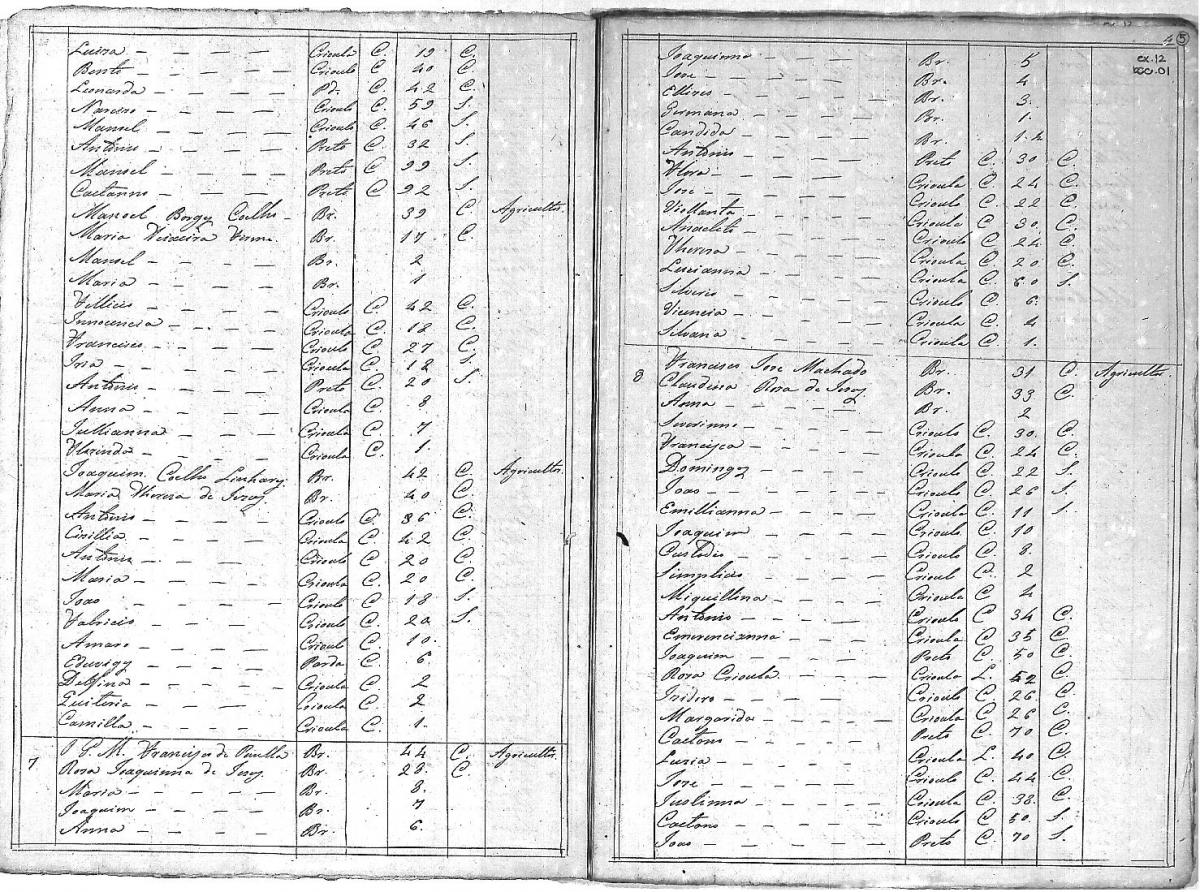 Luiza — Crioula C. 19 C.
Bento — Crioulo C 40 C.
Leonarda — Pd. C. 42 C.
Narcizo — Crioulo C. 59 S.
Manoel — Crioulo C. 46 S.
Antonio — Preto C. 32 S.
Manoel — Preto C 99 S.
Caetanno — Preto C 92 S.
Manoel Borgy Coelho — Br. 39 C. Agricultor.
Maria Teixeira Br. 17 C.
Manoel — Br. 2
Maria — Br. 1
Fellicio — Crioulo C. 42 C.
Innocencia — Crioula C. 18 C.
Francisco — Crioulo C. 27 C.
Iria — Crioula C. 12 S.
Antonio — Preto C. 20 S.
Anna — Crioula C. 8.
Jullianna — Crioula C. 7
Florinda — Crioula C. 1.
Joaquim Coelho Linhary Br. 42 C. Agricultor.
Maria Thereza de Jezoz Br. 40 C.
Antonio — Crioulo C. 36 C.
Cicillia — Crioula C. 42 C.
Antonio — Crioulo C. 20 C.
Maria — Crioula C. 20 C.
Joao — Crioulo C 18 S.
Fabricio — Crioulo C. 20 S.
Amaro — Crioulo C. 10.
Eduvigy — Parda C. 6.
Delfina — Crioula C. 2
Quiteria — Crioula C. 2
Camilla — Crioula C. 1.
7 Francisco de Br. 44 C. Agricultor
Roza Joaquinna de Jezoz Br. 28. C.
Maria — Br. 8.
Joaquim — Br. 7
Anna — Br. 6.
4 5
cx.12
01
Joaquinna — Br. 5
Joze — Br. 4
Br. 3.
Germana — Br. 1.
Candida — Br. 12
Antonio — Preto C. 30 C.
Flora — Crioula C. 24 C.
Joze — Crioulo C. 22 C.
Viollanta — Crioula C 30. C.
Anacleto — Crioulo C. 24 C.
Thereza — Crioula C. 20 C.
Lucianna — Crioula C. 60 S.
Silverio — Crioulo C. 6.
Vicencia — Crioula C. 4
Silvana — Crioula C. 1.
8 Francisco Joze Machado Br. 31 C. Agricultor.
Claudina Roza de Jezoz Br. 33 C.
Anna — Br. 2
Severinno — Crioulo C. 30. C.
Francisca — Crioula C. 24 C.
Domingoz — Crioulo C. 22 S.
Joao — Crioulo C. 26 S.
Emillianna — Crioula C. 11 S.
Joaquim — Crioulo C. 10
Custodio — Crioulo C. 8.
Simplicio — Crioulo C. 2
Miquillina — Crioula C 4
Antonio — Crioulo C 34 C.
Emerencianna — Crioula C. 35 C.
Joaquim — Preto C. 50 C.
Roza Crioula — Crioula L. 52 C.
Izidoro — Crioulo C. 26 C.
Margarida — Crioula C. 26 C.
Caetano — Preto C. 70 C.
Luzia — Crioula L. 40 C.
Joze — Crioulo C. 44 C.
Justinna — Crioula C. 38. C.
Caetano — Crioulo C. 50. S.
Joao — Preto C. 70 S.